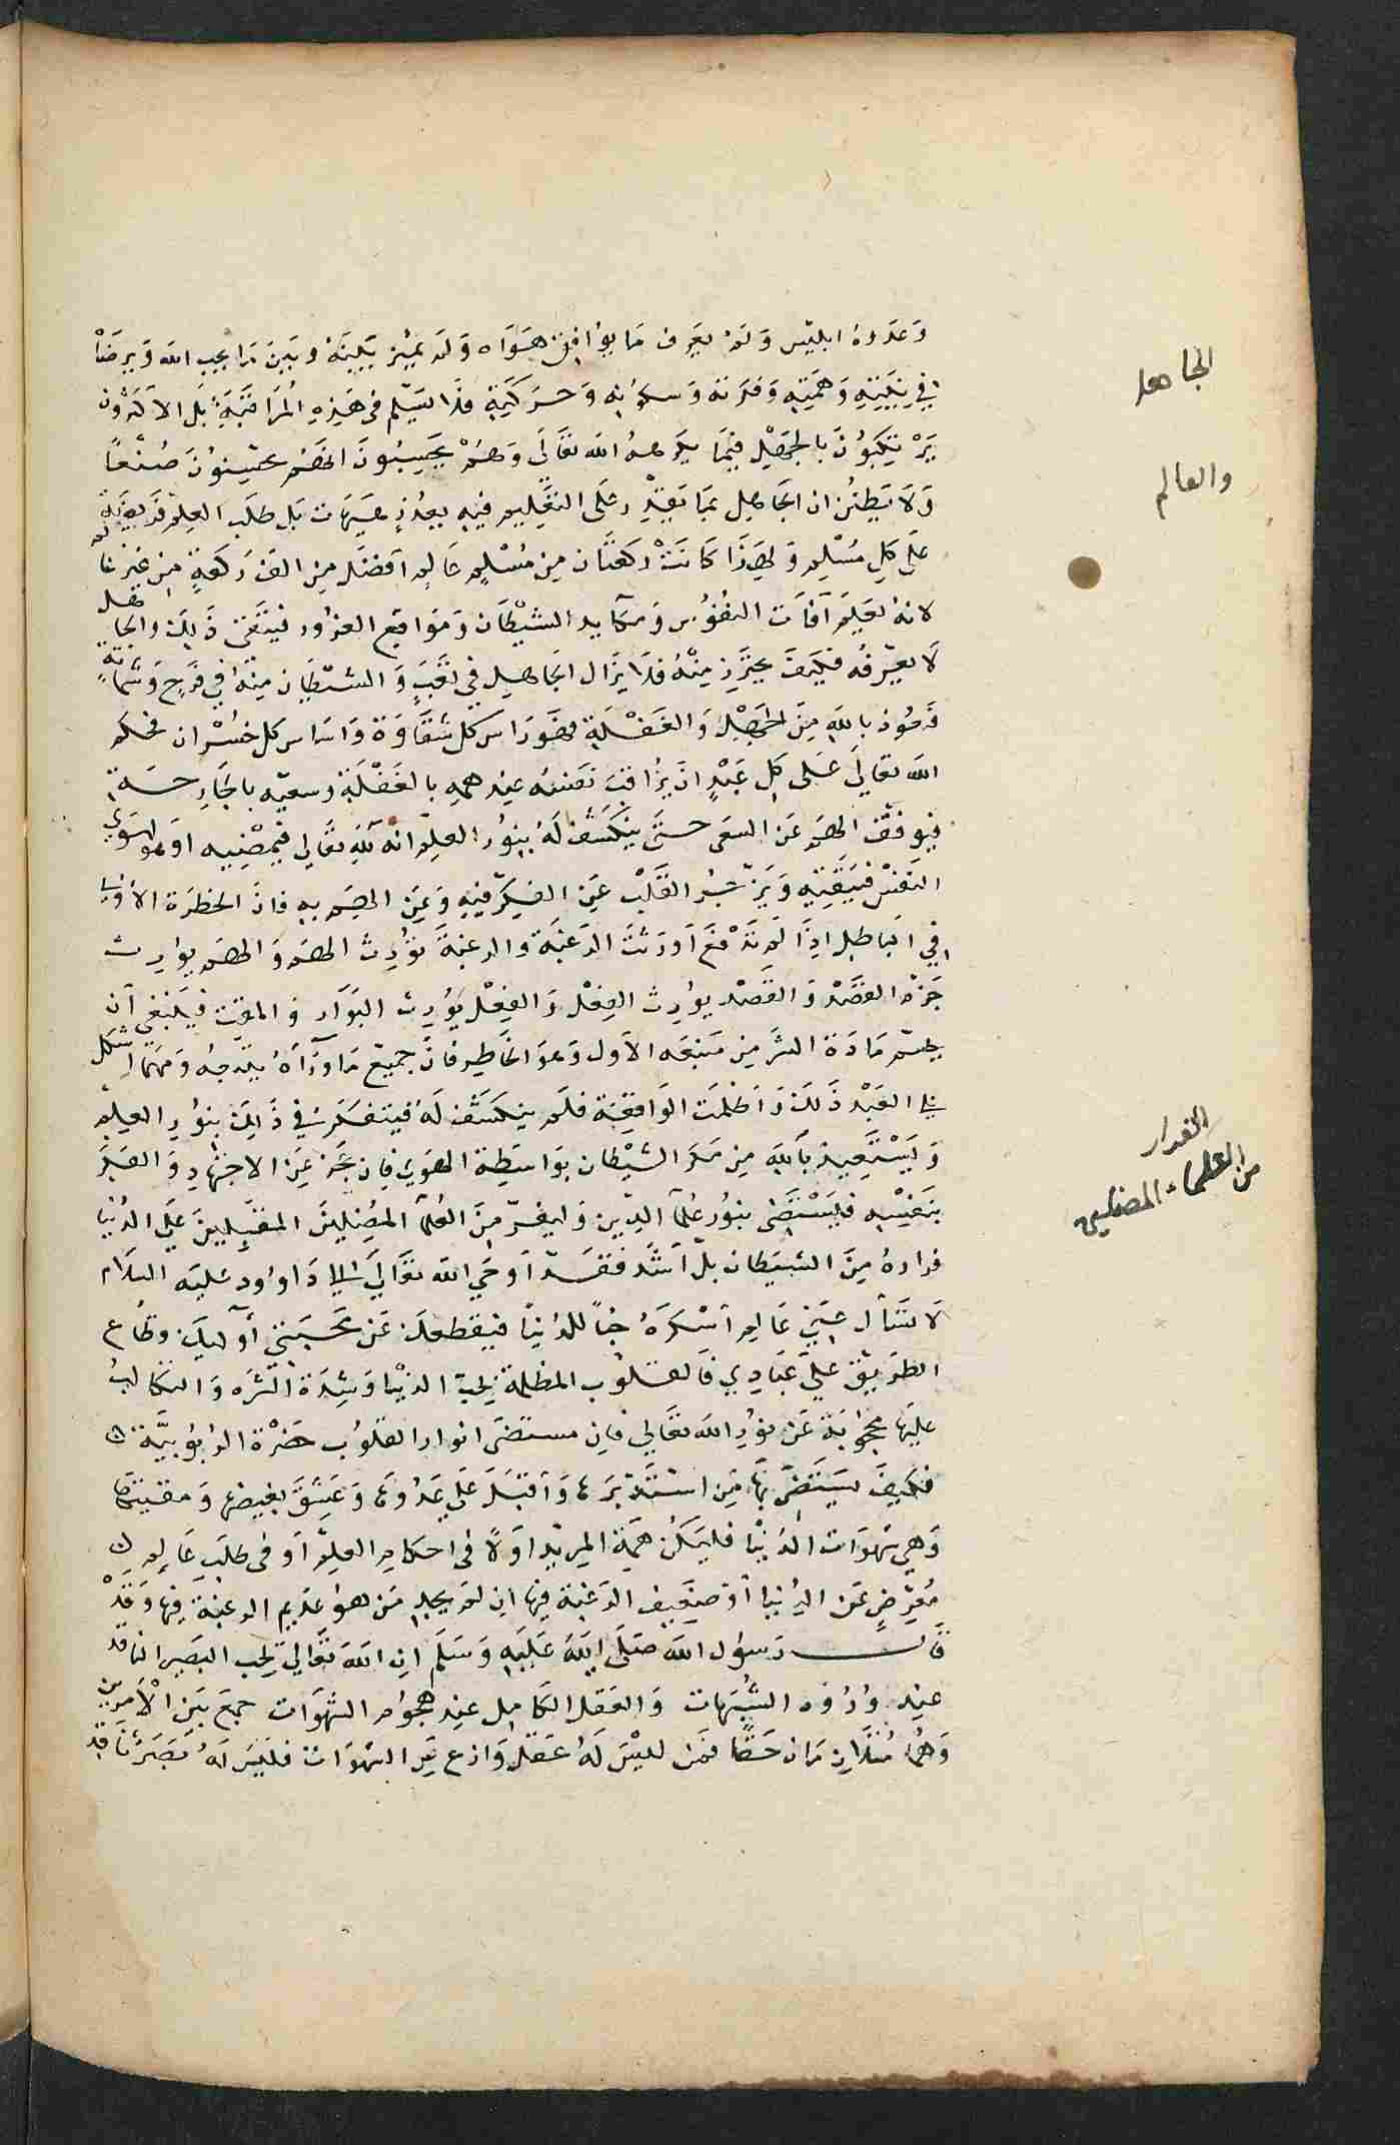 وَعَدُوهُ ابليّس وَلَمْ يعَرِف مَا يوُافِق هَوَاه وَلَم يميْز بَيْنَهُ وبَينَ مَا يحِب اللّه وَيرضَاهُ
في نِيَّتِهِ وَهمَّتِهِ وَفِكرتهِ وَسكوُنِهِ وَحَركَتِهِ فلا يَسْلم في هَذِهِ المُرَاقَبَةِ بَل الاكثرُون
يَرْتكِبوُنَ بالجَهْلِ فيمَا يكرَههُ اللّه تعَالَى وَهُمْ يَحسِبُونَ انهُم يحسِنوُنَ صُنْعًا
وَلَا تَظُنن ان الجَاهِل بمَا يَقدِر عَلى التعَلِيم فيهِ يعذر هَيهَات بَل طَلَب العِلم فَرِيضَة
عَلَى كلِ مسُلِم وَلِهذَا كَانَتْ رَكعتَان مِن مُسْلِم عَالِم افضَل مِن الف رَكعةٍ مِن غير عَالم
لانهُ يَعلَم آفات النفوُس وَمكايد الشيْطَان وَمَوَاقع الغرُور فيَتَقى ذَلِكَ والجاهل
لَا يعَرِفُه فكَيفَ يحترِز مِنْهُ فلَا يزَال الجاهِل في تعَبٍ وَالشيَطَان مِنهُ في فَرَحٍ وَشَمَاتةٍ
فنَعُوذ باللّهِ مِنَ الجَهْلِ وَالغَفْلَةِ فَهُوَ رَاس كل شَقَاوَة وَاسَاس كل خُسْران فحُكم
اللّه تعَالَى عَلى كلِ عَبْدٍ ان يرُاقب نَفسَهُ عِند همهِ بالفعْلِ وَسعيهِ بالجَارِحَة
فيوَقف الهَم عَن السعَى حَتى ينكَشف لهُ بِنوُر العِلم انهُ للّهِ تعَالى فيمضِيه اَو هُو لِهَوى
النفسْ فيَتقيهِ وَيَزجُر القلَبْ عَنِ الفِكر فيهِ وَعَنِ الهَم بهِ فانَ الخَطرَة الاولى
في البَاطِل اِذَا لم تُدْفعَ اَوْرَثتَ الرغبَة وَالرغبَة توُرِثُ الهَم وَالهَم يوُرِث
جَزم القصْد وَالقَصْد يوُرِث الفعْل وَالفِعْل يوُرِث البوَار وَالمقت فيَنبغي اَن
يحسم مَادَة الشَر مِن مَنبَعهِ الاول وَهوَ الخَاطِر فانَ جميعَ مَا وَرَآهُ يتبَعهُ وَمهمَا اشكل
على العَبْد ذَلكَ وَاظلمَت الوَاقِعَة فلَم ينكَشف لهُ فيَتفكَرُ في ذَلِكَ بِنوُرِ العِلم
وَيَسْتعِيذ باللّهِ مِن مَكر الشيْطان بوَاسَطةِ الهَوى فان عَجَز عَنِ الاجتِهَادِ وَالفِكر
بنَفْسِهِ فليَسْتَضِيْ بنوُر عُلمآ الدِين وَليفرّ مِنَ العُلمآ المضِلينَ المقبِلينَ عَلى الدُنيا
فرارهُ مِنَ الشيَطان بلْ اَشَد فقَد اَوحَي اللّه تعَالى الى دَاوُود عَليه السَلَام
لَا تَسْأل عَنِي عَالِم اَسْكَرَهُ حُباً للدُنيَا فيَقطعكَ عَن مَحَبَتي أولَيكَ قطاع
الطريق عَلى عِبَادِي فالقلُوب المظلمة بحُب الدنيْا وَشِدَة الشَرَه وَالتكالب
عليَها محجوُبَة عَن نوُرِ اللّه تعَالى فان مستضَى انوار القلوُب حَضْرَة الربُوبيَّة
فكيف يَسْتَضِئ بهَا مَن اسْتَدبَرَها وَاَقبَل عَلى عَدُوهَا وَعَشِقَ بغيضهَا وَمقيتهَا
وَهي شَهَوات الدُنيْا فليَكنُ همَة المريد اوَلاً في احكام العِلم اَو في طلَبِ عَالِمِ
مُعْرِضٍ عَن الدُنيَا أوَ ضعِيف الرَغبَة فيهَا ان لمَ يجد مَن هوَ عَدِيم الرغبَة فيها وَقَدْ
قَال رَسوُل اللّه صَلَى اللّهُ عَليَهِ وَسَلم ان اللّه تعَالى يحِب البَصَر الناقد
عِند وُرُود الشُبُهات وَالعَقل الكَامِل عِند هجُوُم الشهَوَات جمعَ بَينَ الاَمرين
وَهُما مُتلَازِمَان حَقًا فَمن ليْسَ لَهُ عَقل وَازِع عَن الشهوَات فليَسَ لَهُ بَصَرنَاقد
الجاهل
والعالم
الفرار
من العلماء المضلين